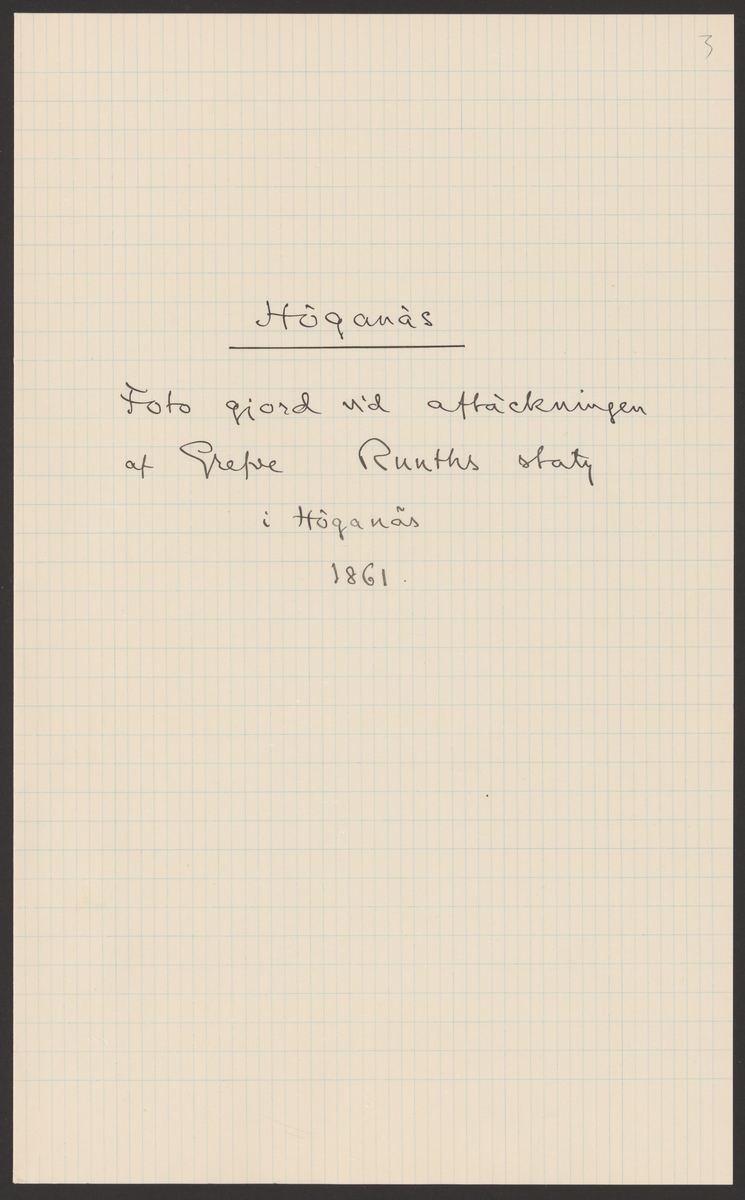 3
Höganäs
Foto gjord vid aftäckningen
af Grefve Ruuths staty
i Höganäs
1861.